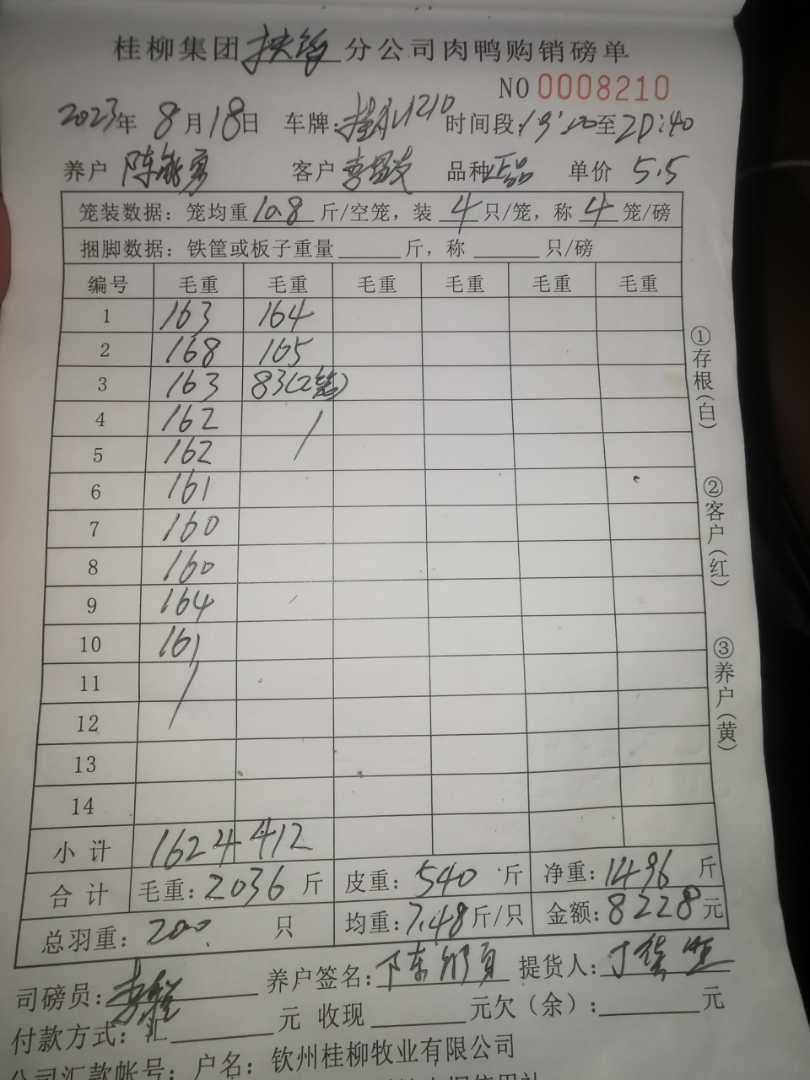 桂柳集团扶绥分公司肉鸭购销磅单
NO 0008210
2023年 8月18日 车牌: 时间段: 至20:40
养户 陈能勇 客户 品种 正品 单价 5.5
笼装数据: 笼均重 10.8 斤/空笼, 装 4 只/笼, 称 4 笼/磅
捆脚数据: 铁筐或板子重量 斤, 称 只/磅
编号 毛重 毛重 毛重 毛重 毛重 毛重
1 163 164
2 168 165
3 163 83(2笼)
4 162 /
5 162
6 161
7 160
8 160
9 164
10 161
11 /
12
13
14
小计 1624 412
合计 毛重: 2036 斤 皮重: 540 斤 净重: 1496 斤
总羽重: 200 只 均重: 7.48 斤/只 金额: 8228 元
司磅员: 养户签名: 陈能勇 提货人:
付款方式: 汇 元 收现 元欠(余): 元
公司汇款帐号: 户名: 钦州桂柳牧业有限公司
①存根(白)
②客户(红)
③养户(黄)